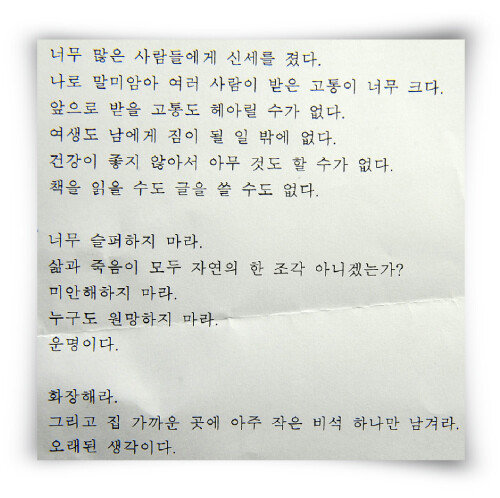 너무 많은 사람들에게 신세를 졌다.
나로 말미암아 여러 사람이 받은 고통이 너무 크다.
앞으로 받을 고통도 헤아릴 수가 없다.
여생도 남에게 짐이 될 일 밖에 없다.
건강이 좋지 않아서 아무 것도 할 수가 없다.
책을 읽을 수도 글을 쓸 수도 없다.
너무 슬퍼하지 마라.
삶과 죽음이 모두 자연의 한 조각 아니겠는가?
미안해하지 마라.
누구도 원망하지 마라.
운명이다.
화장해라.
그리고 집 가까운 곳에 아주 작은 비석 하나만 남겨라.
오래된 생각이다.